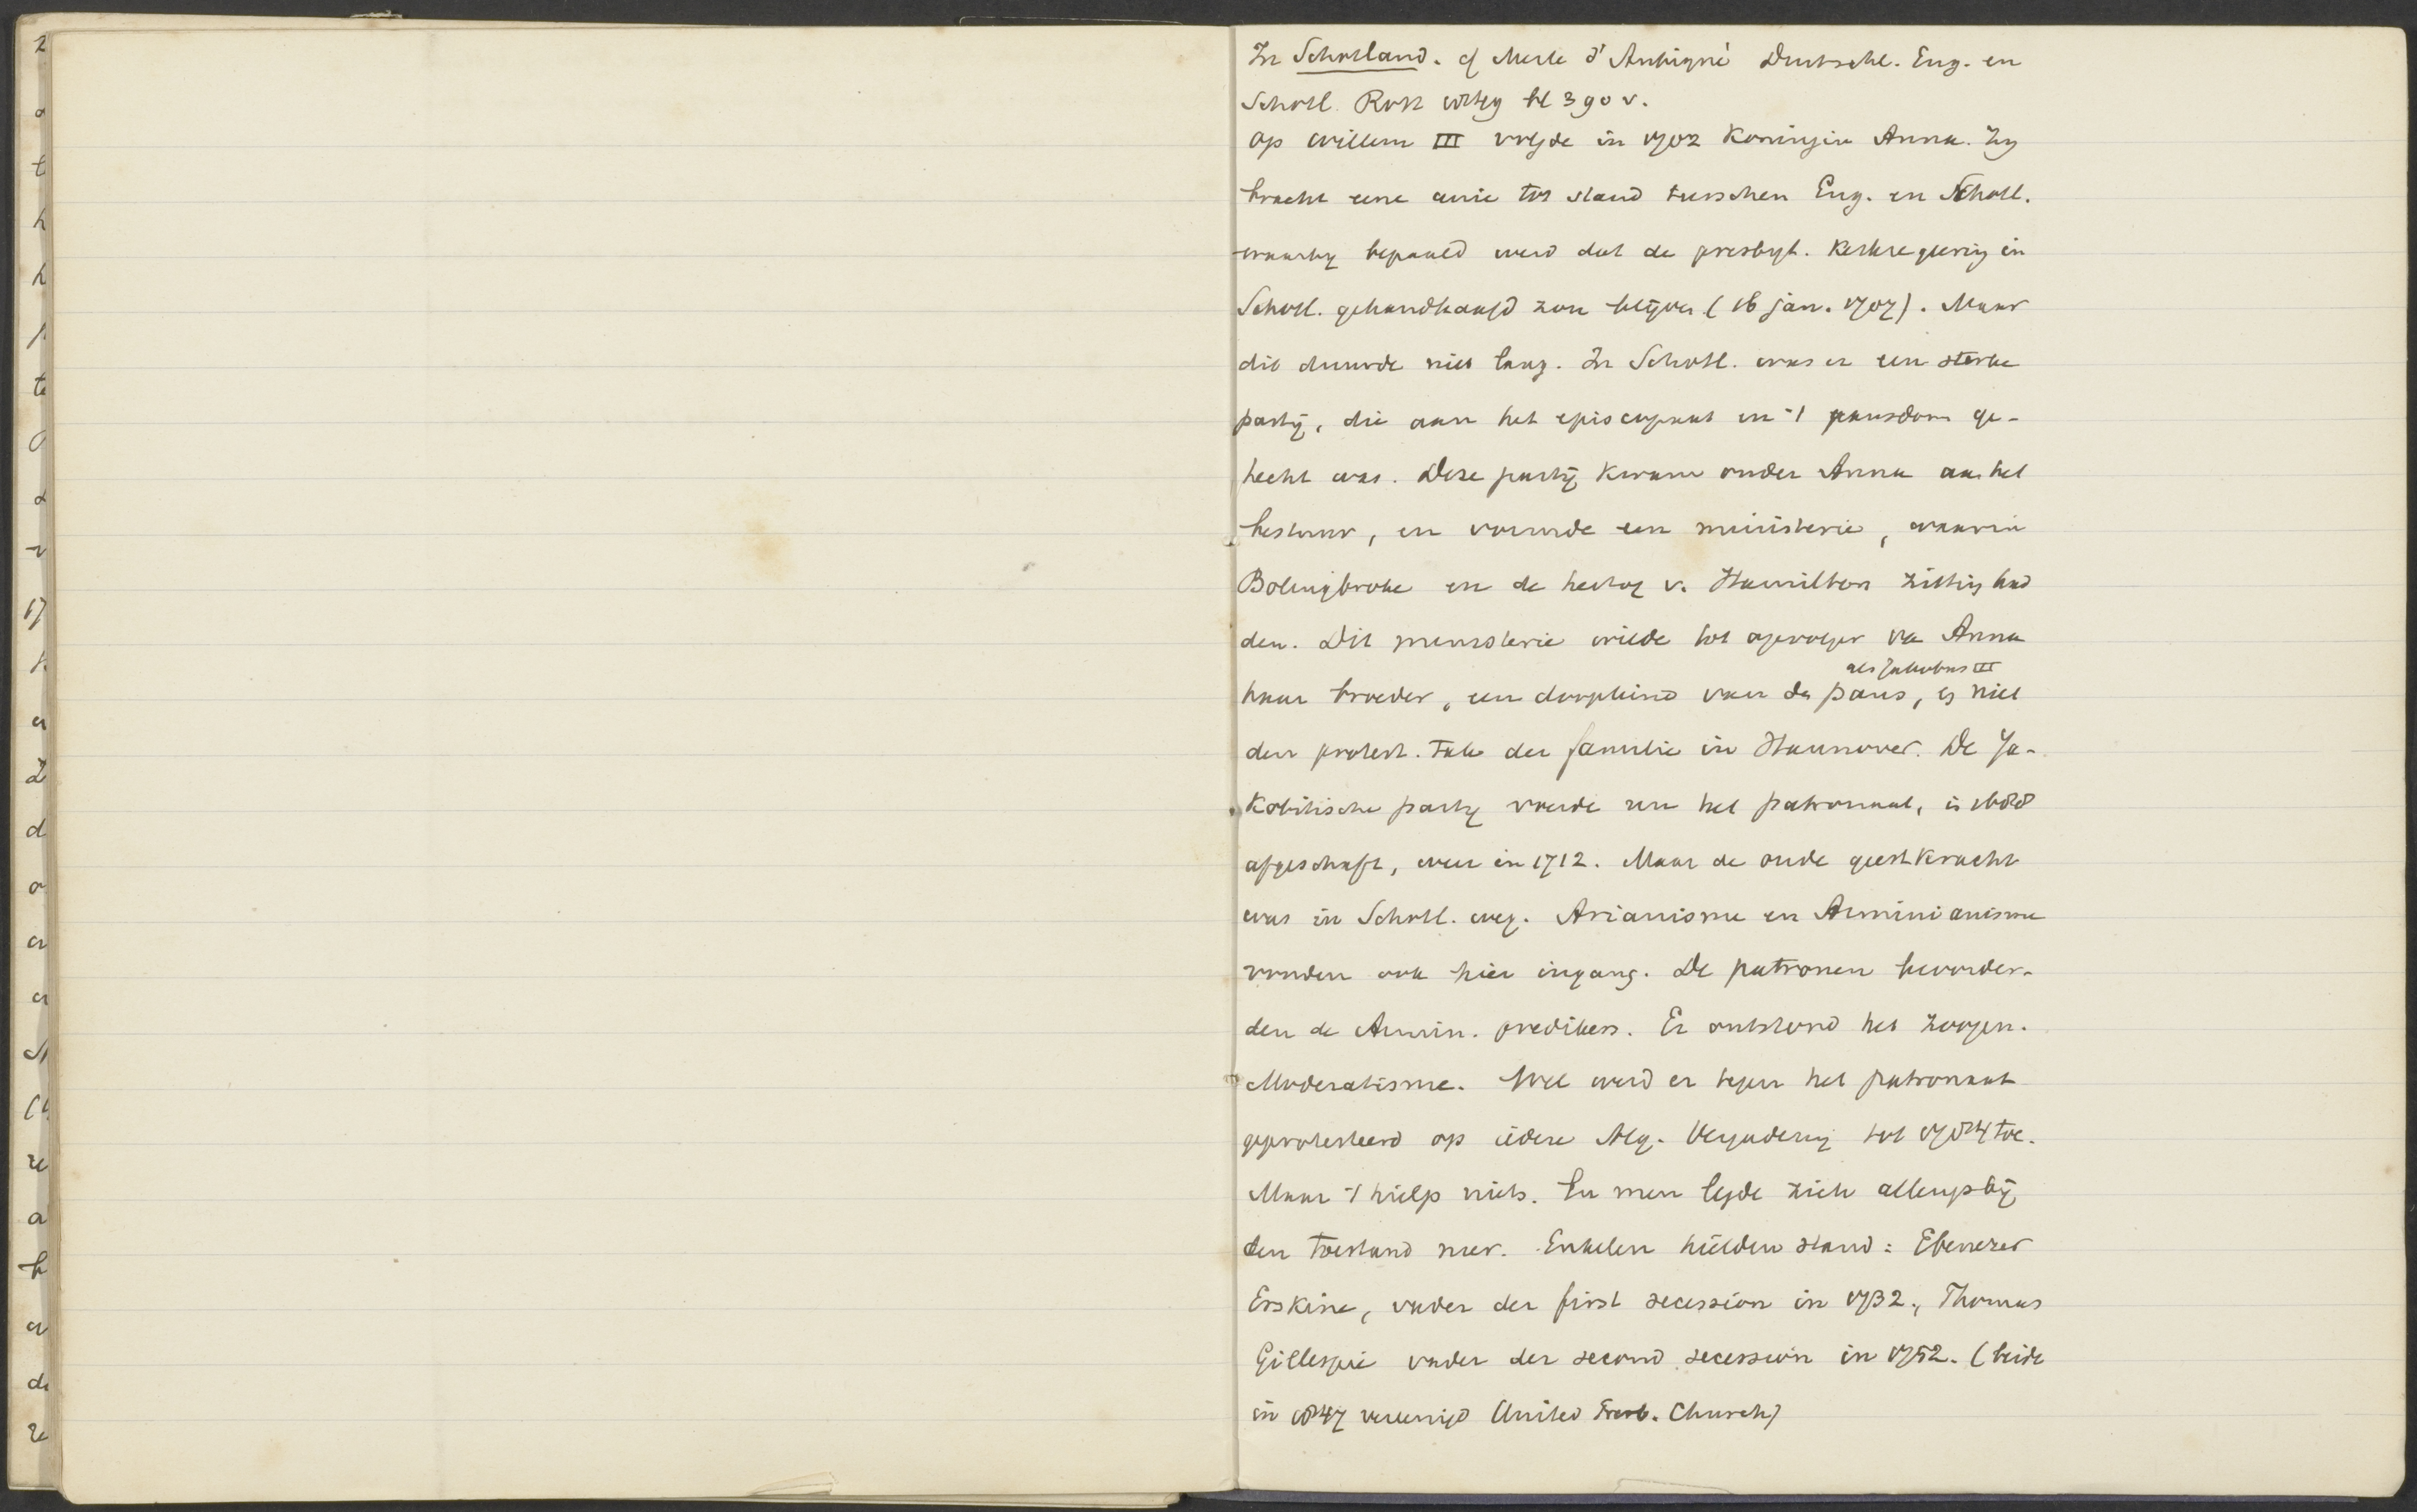 In Schotland. cf Merle d'Aubigné Deutschl. Eng. en
Schotl. Rott. 1849 bl 390 v.
Op Willem III volgde in 1702 Koningin Anna. Zij
bracht eene unie tot stand tusschen Eng. en Schotl.
waarbij bepaald werd dat de presbyt. Kerkregeering in
Schotl. gehandhaafd zou blijven (16 jan. 1707). Maar
dit duurde niet lang. In Schotl. was er een sterke
partij, die aan het episcopaat en 't pausdom ge-
hecht was. Deze partij kwam onder Anna aan het
bestuur, en vormde een ministerie, waarin
Bolingbroke en de hertog v. Hamilton zitting had
den. Dit ministerie wilde tot opvolger van Anna
als Jakobus III
haar broeder, een doopkind van de paus, en niet
den protest. tak der familie in Hannover. De Ja-
kobitische partij voerde nu het patronaat, in 1688
afgeschaft, weer in 1712. Maar de oude geestkracht
was in Schotl. weg. Arianisme en Arminianisme
vonden ook hier ingang. De patronen bevorder-
den de Armin. predikers. Er ontstond het zoogen.
Moderatisme. Wel werd er tegen het patronaat
geprotesteerd op iedere Alg. Vergadering tot 1784 toe.
Maar 't hielp niets. En men legde zich allengs bij
den toestand neer. Enkelen hielden stand: Ebenezer
Erskine, vader der first secession in 1732, Thomas
Gillespie vader der second secession in 1752. (beide
in 1847 vereenigd United Presb. Church)